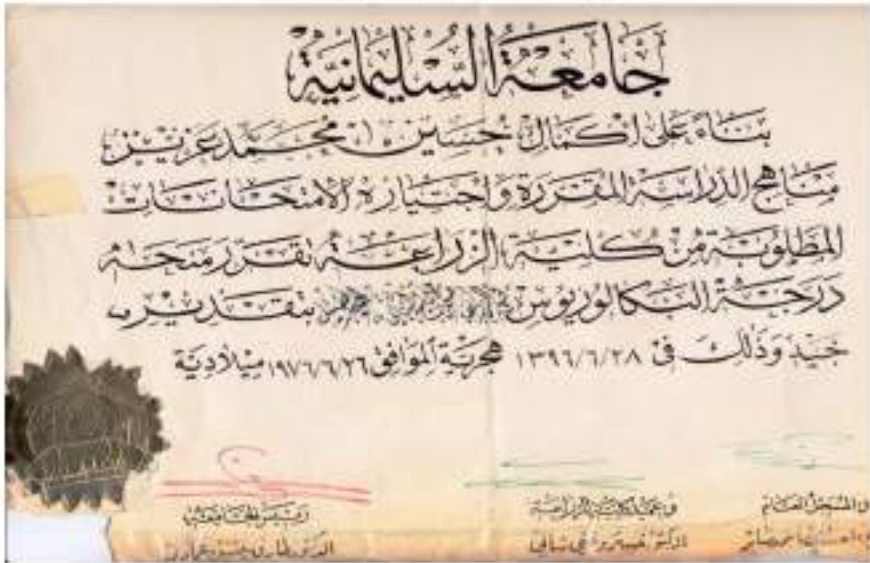 جامعة السليمانية
بناء على اكمال حسين محمد عزيز
مناهج الدراسة المقررة واجتيازه الامتحانات
المطلوبة من كلية الزراعة تقرر منحه
درجة البكالوريوس بتقدير
جيد وذلك في ١٣٩٦/٦/٢٨ هجرية الموافق ١٩٧٦/٦/٢٦ ميلادية
المسجل العام
وعميد كلية الزراعة
رئيس الجامعة
الدكتور
الدكتور طارق